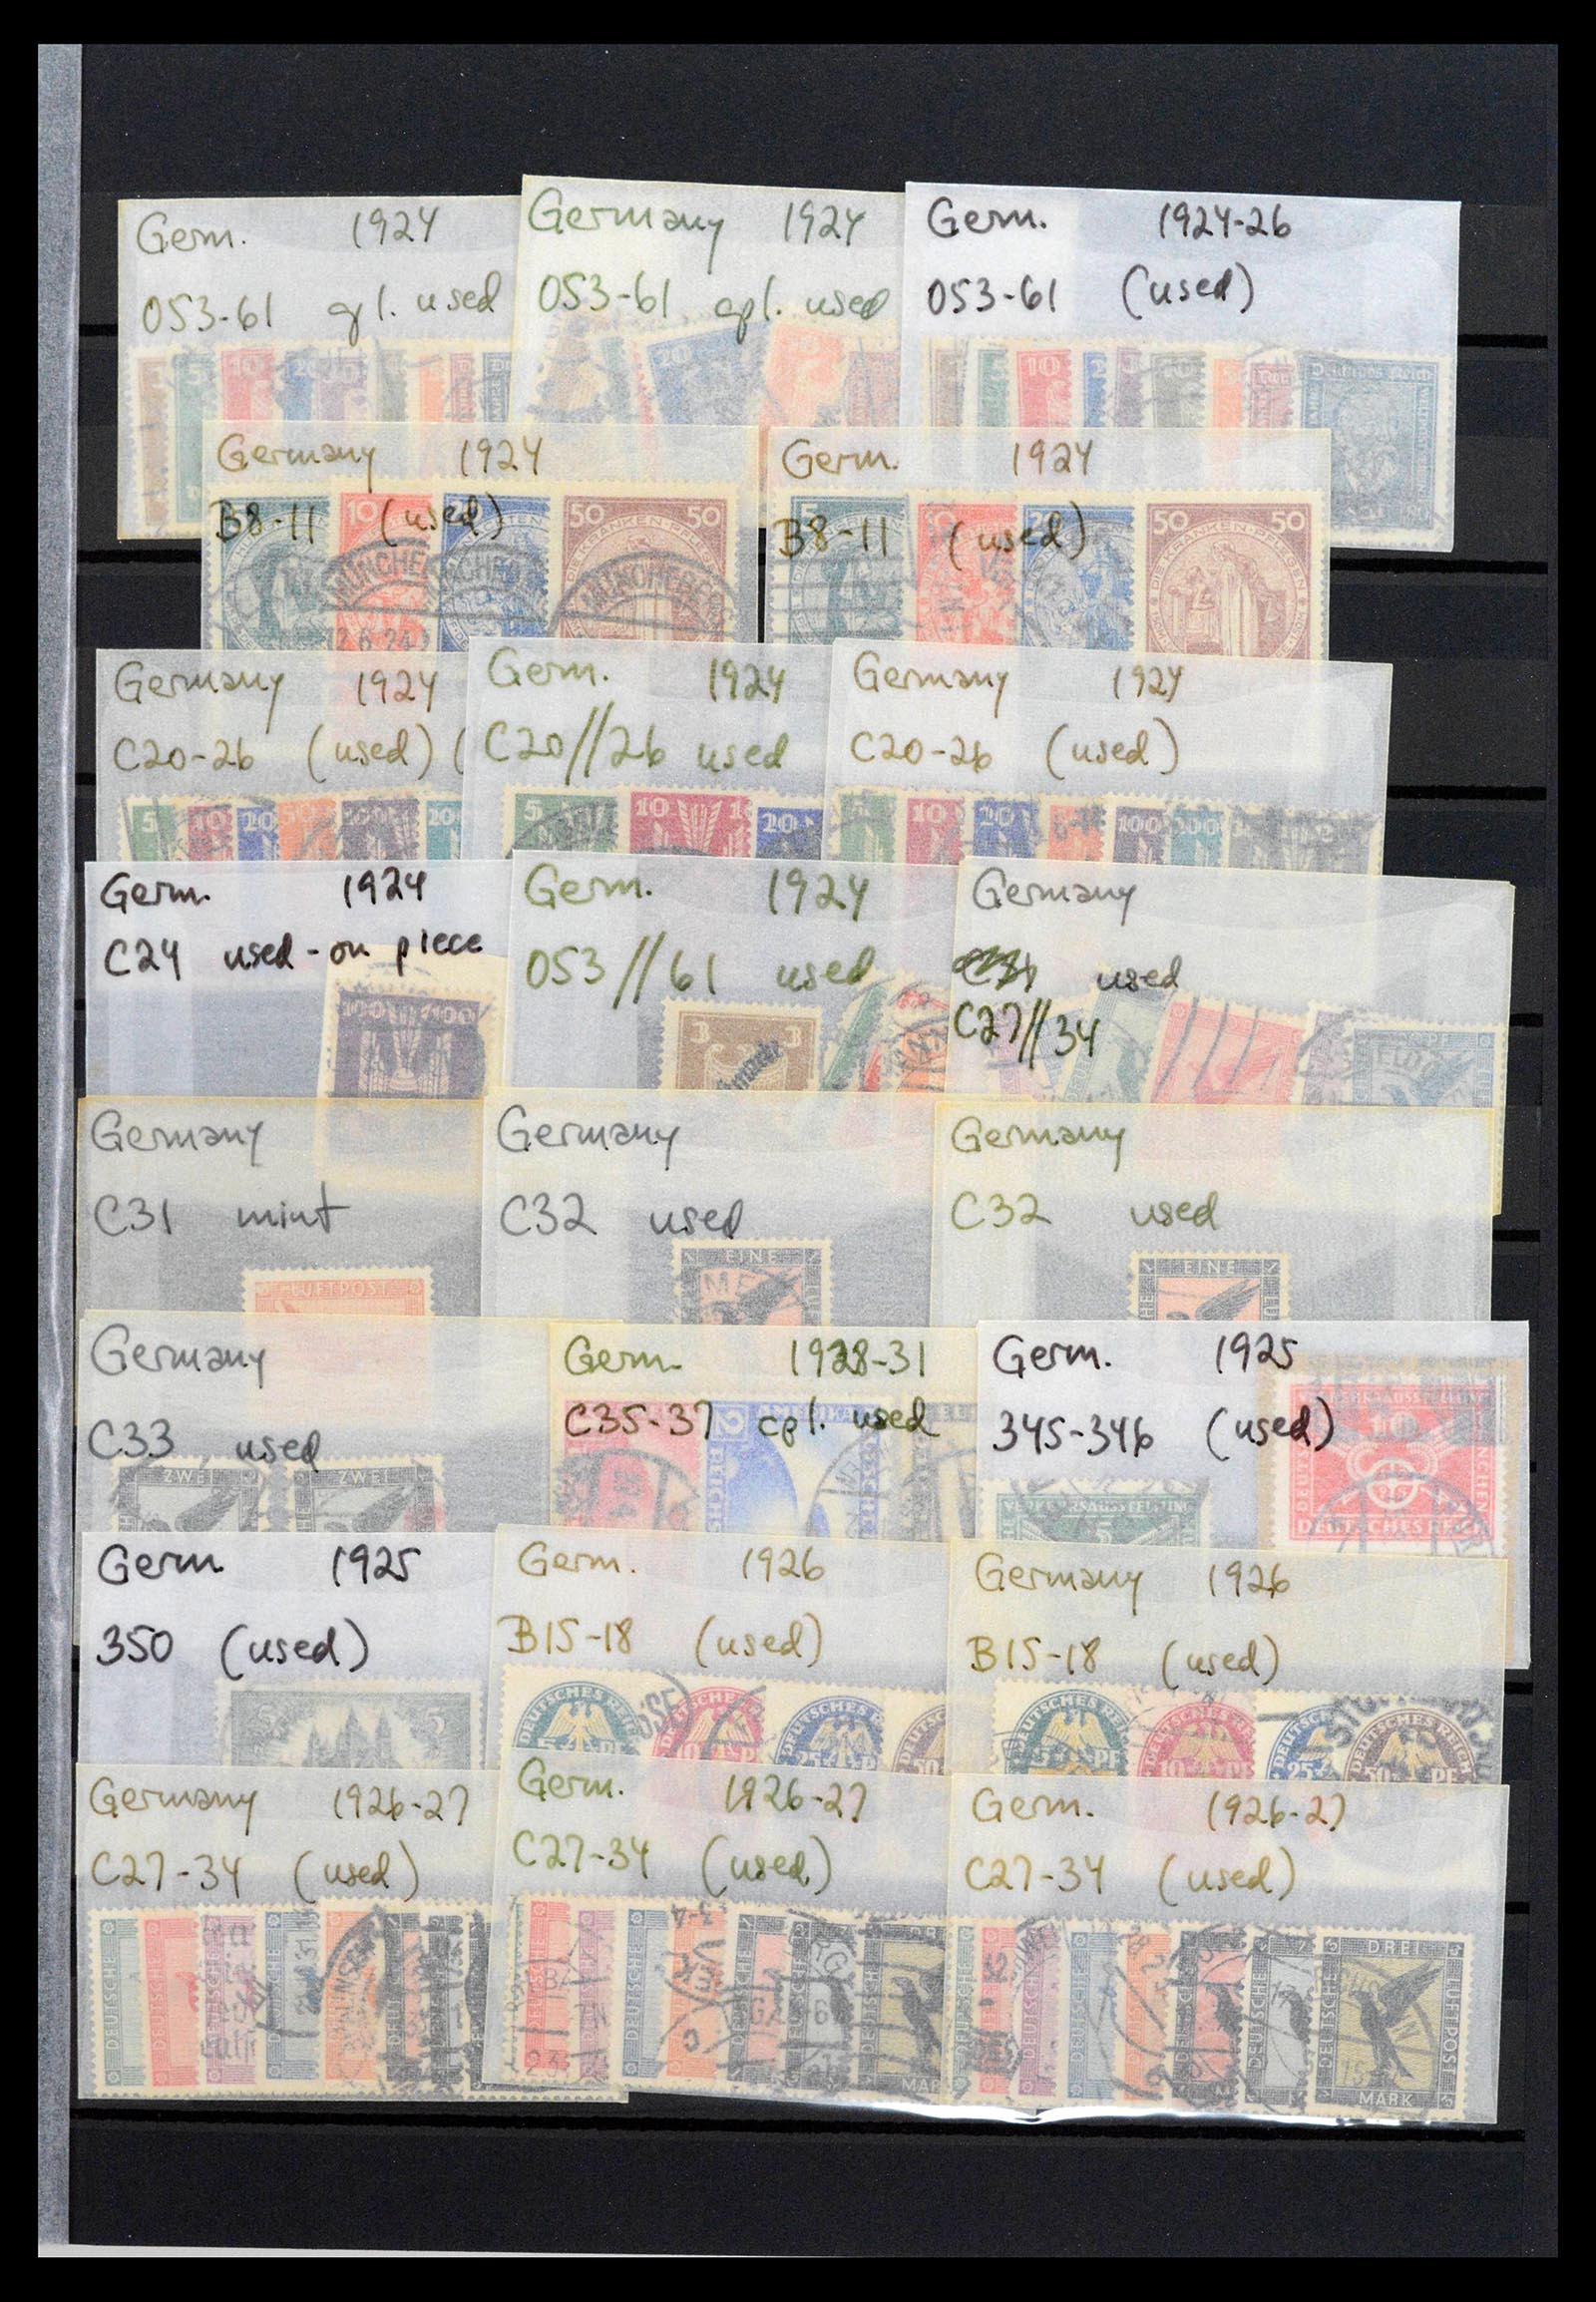 Germ. 1924
O53-61 cpl. used
Germany 1924
O53-61 cpl. used
Germ. 1924-26
O53-61 (used)
Germany 1924
B8-11 (used)
10
50 50
MÜNCHEBERG
12.6.24
Germ. 1924
B8-11 (used)
5
50 50
DIE KRANKEN PFLEGEN
Germany 1924
C20-26 (used) (
5 10 20 100 200
Germ. 1924
C20//26 used
5 10 20
Germany 1924
C20-26 (used)
5 10 20 100 200
Germ. 1924
C24 used-on piece
100 100
Germ. 1924
O53//61 used
3 3
Germany
used
C27//34
Germany
C31 mint
LUFTPOST
Germany
C32 used
EINE
Germany
C32 used
EINE
Germany
C33 used
ZWEI ZWEI
Germ. 1928-31
C35-37 cpl. used
Germ. 1925
345-346 (used)
VERKEHRSAUSSTELLUNG
5
10
DEUTSCHES REICH
Germ 1925
350 (used)
5 5
Germ. 1926
B15-18 (used)
DEUTSCHES REICH
5 PF 10 PF 25 PF 50
Germany 1926
B15-18 (used)
DEUTSCHES REICH
5 PF 10 PF 25 50 PF
Germany 1926-27
C27-34 (used)
DEUTSCHE
Germ. 1926-27
C27-34 (used)
MARK
Germ. 1926-27
C27-34 (used)
DREI
DEUTSCHE LUFTPOST
MARK